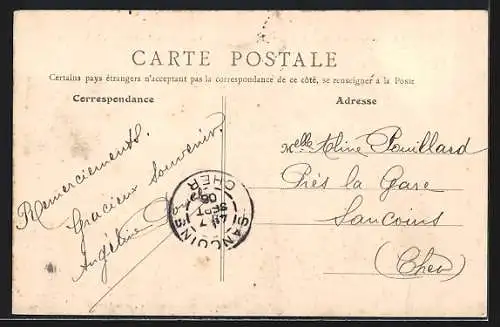 CARTE POSTALE
Certains pays étrangers n'acceptant pas la correspondance de ce côté, se renseigner à la Poste
Correspondance
Adresse
Remerciements.
Gracieux Souvenir.
Angéline
Melle Aline Pouillard
Près la Gare
Sancoins
(Cher)
SANCOINS
CHER
7
SEPT
06